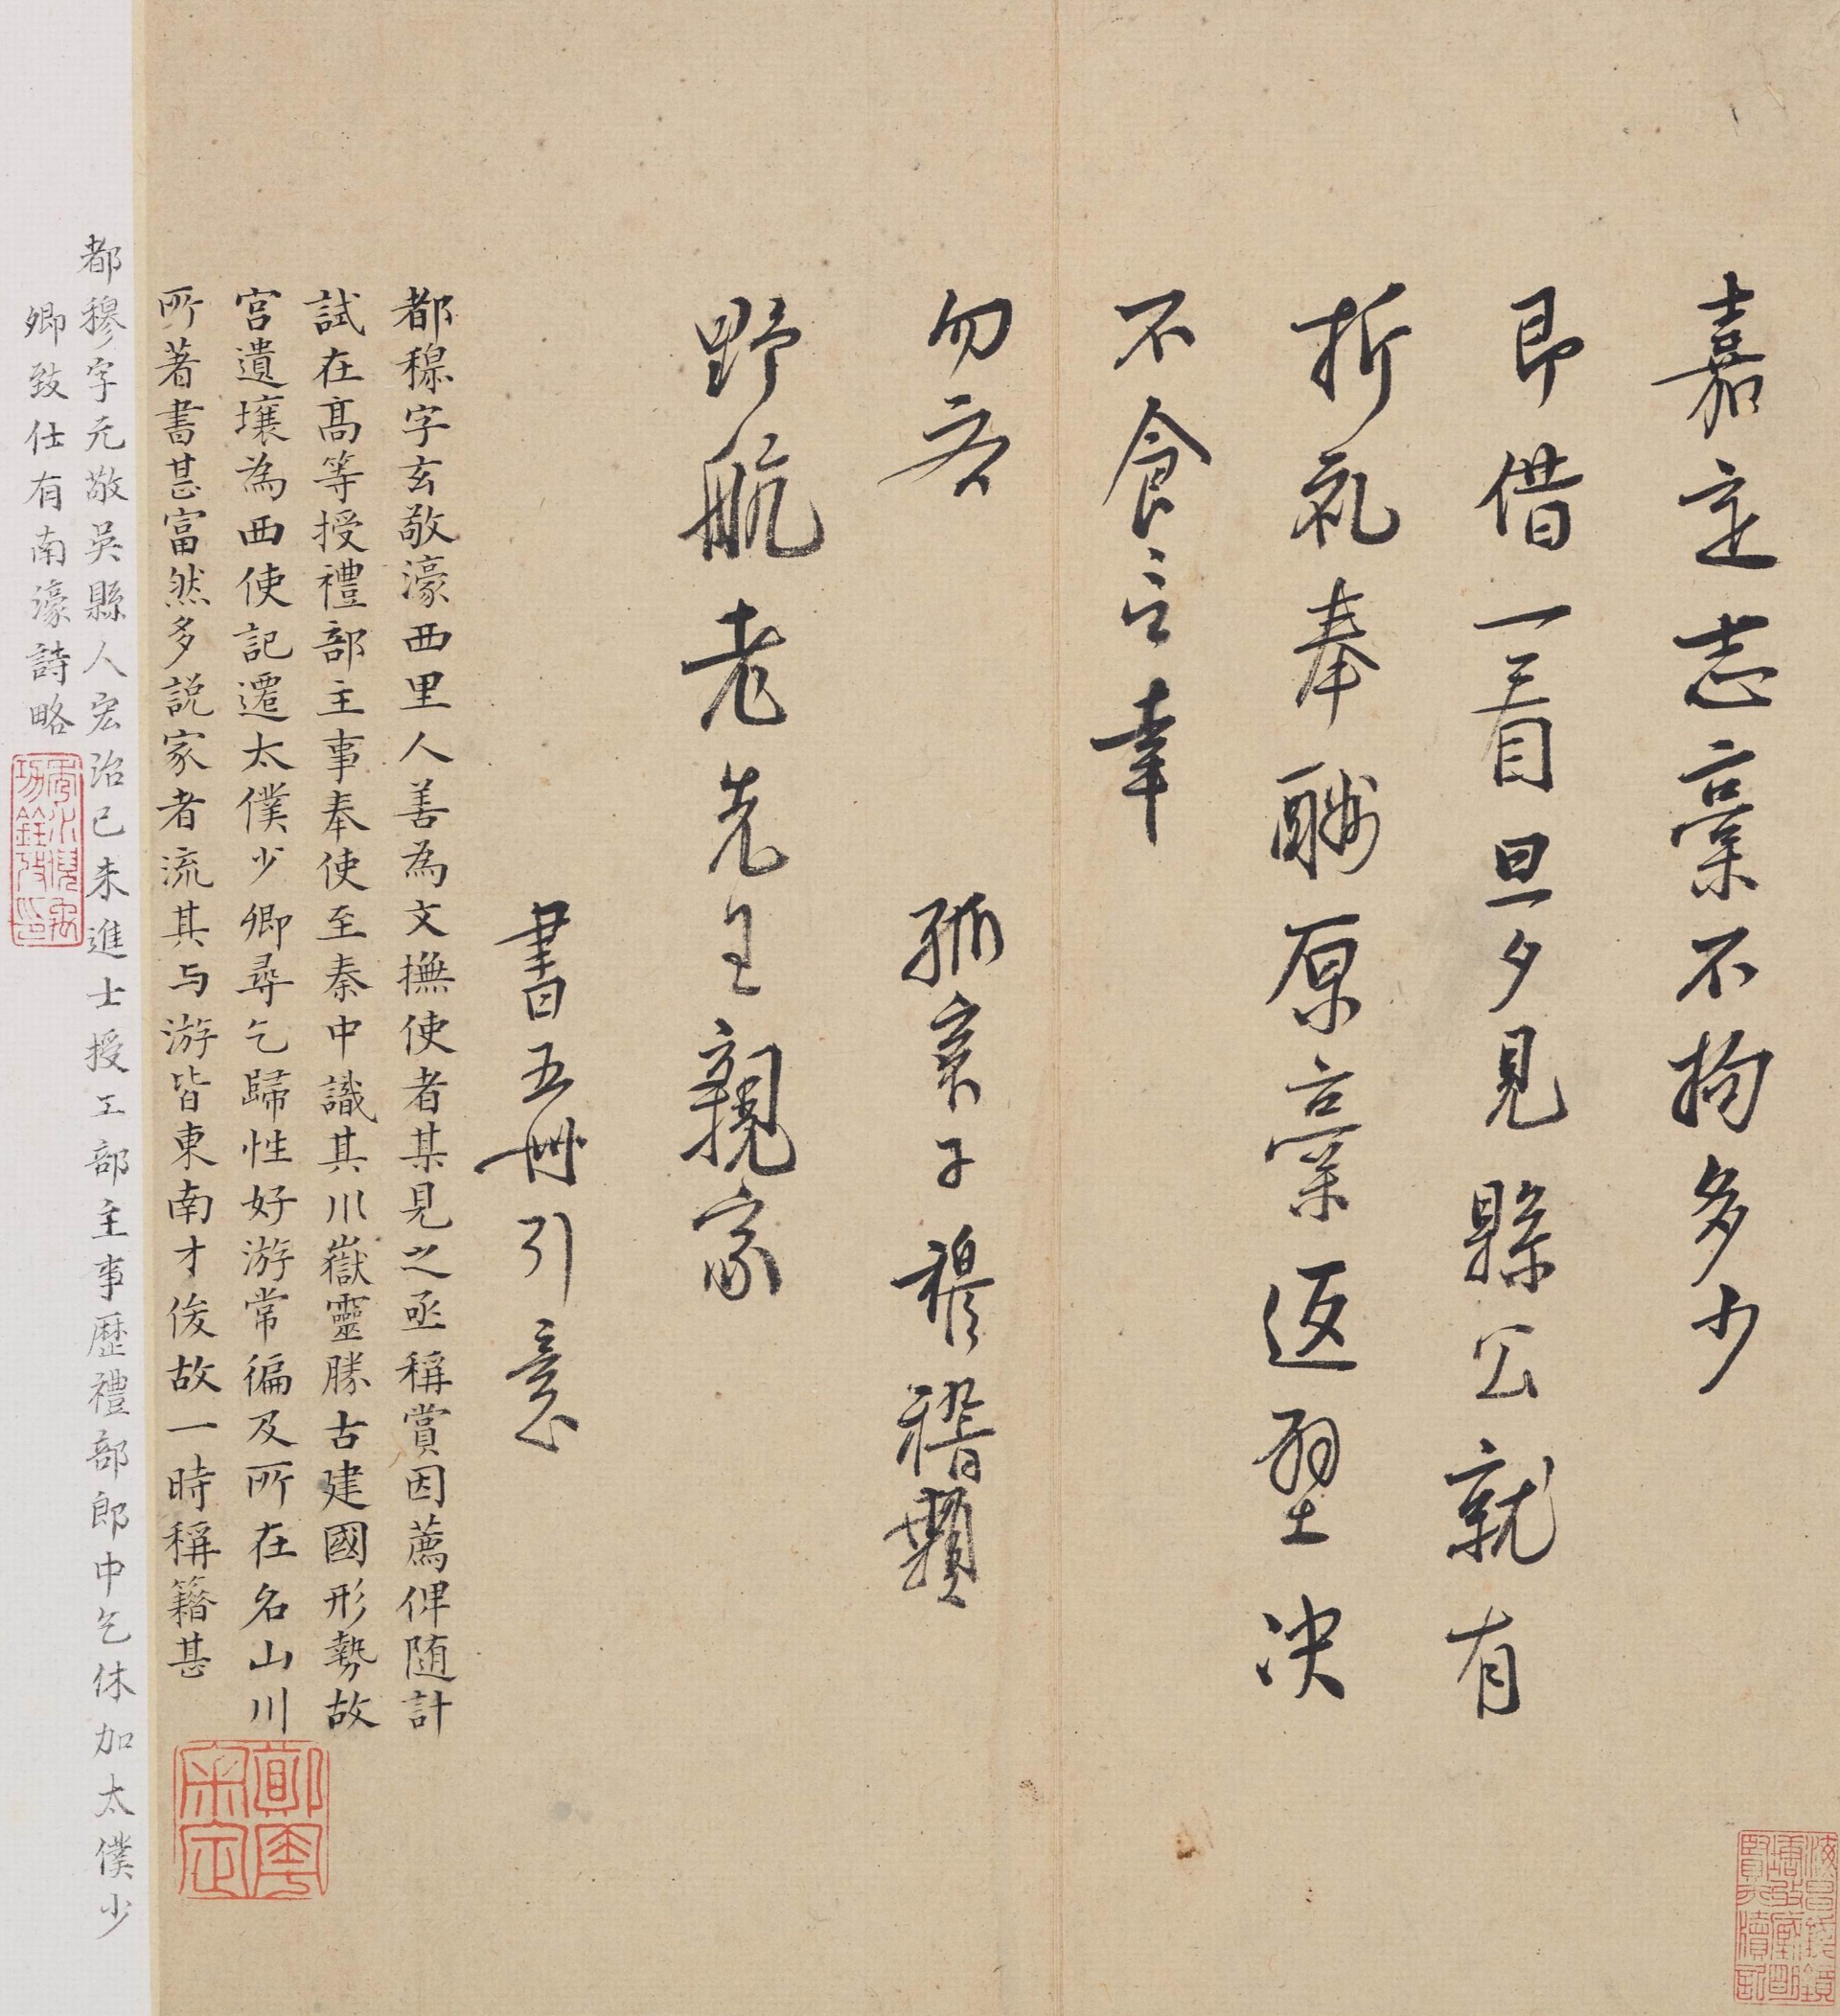 嘉定志藁不拘多少
即借一看旦夕見縣公就有
折礼奉酬原藁返璧决
不食言幸
勿吝
孤哀子穆稽顙
野航老先生親家
書五冊引意
都穆字玄敬濠西里人善為文撫使者某見之亟稱賞因薦俾随計
試在髙等授禮部主事奉使至秦中識其川嶽靈勝古建國形勢故
宮遺壤為西使記遷太僕少卿尋乞歸性好游常徧及所在名山川
所著書甚富然多説家者流其与游皆東南才俊故一時稱籍甚
都穆字元敬吳縣人宏治己未進士授工部主事歷禮部郎中乞休加太僕少
卿致仕有南濠詩略